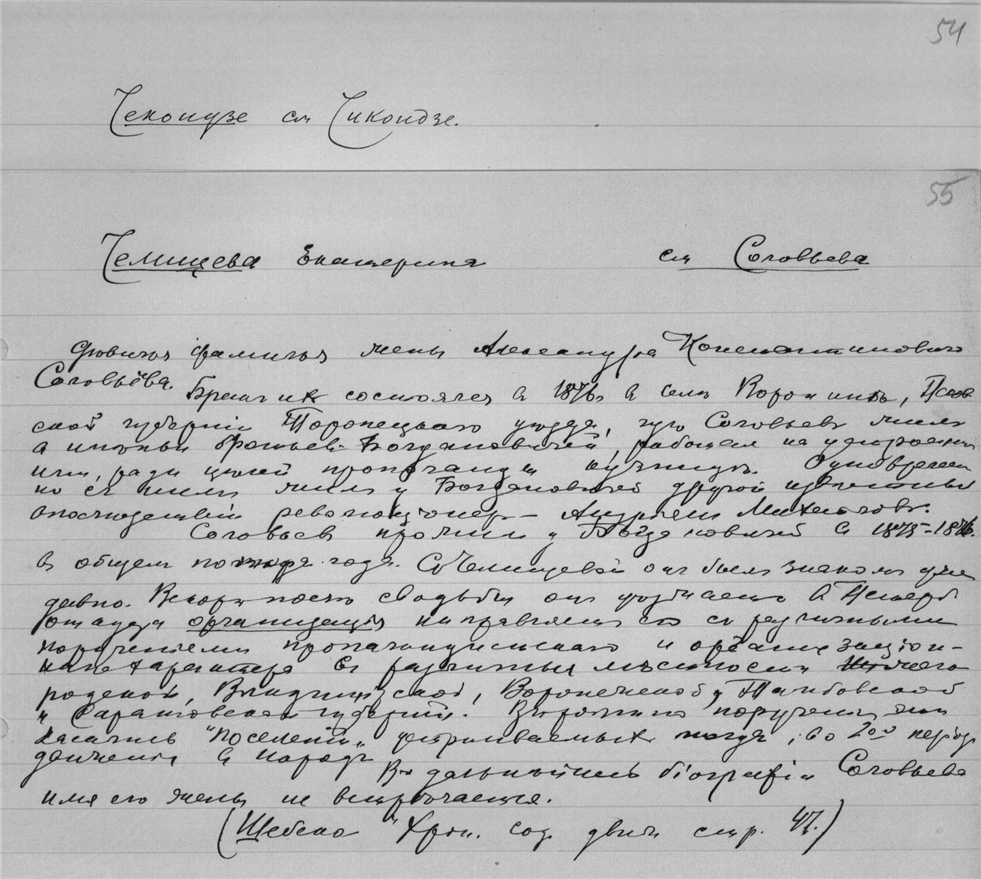 54
Чекоидзе см Чикоидзе.
55
Челищева Екатерина см Соловьева
Девичья фамилья жены Александра Константиновича
Соловьёва.
Брак их состоялся в 1876 в селе Воронине, Псков
ской губернии Торопецкаго уезда, где Соловьев жил
в имении братьев Богдановичей, работая на устроенной
ими, ради целей пропаганды кузнице. Одновремен
но с ним жил у Богдановичей другой известный
впоследствии революционер — Адриан Михайлов.
Соловьев прожил у Богдановичей в 1875–1876.
в общем полтора года. С Челищевой он был знаком уже
давно. Вскоре после свадьбы он уезжает в Петерб
организация направляет его с различными
поручениями пропагандистскаго и организацион-
наго характера в различныя местности
Нижего
родской, Владимирской, Воронежской, Тамбовской
и Саратовской губерний. Вероятно поручения эти
касались "поселений" устраиваемых тогда, во 2ой период
движения в народ.
В дальнейшей біографіи Соловьева
имя его жены не встречается.
(Шебеко "Хрон. соц. движ. стр. 47.)